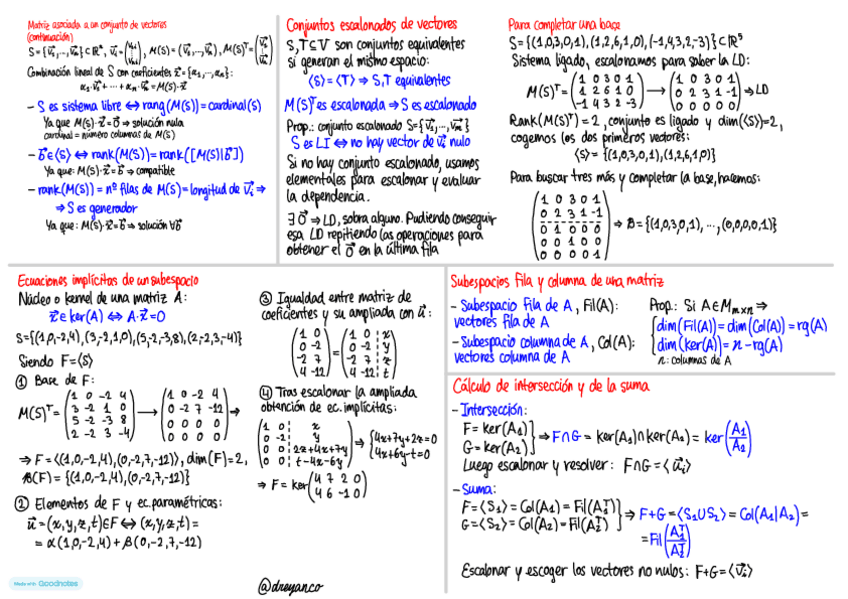 Matriz asociada a un conjunto de vectores
(continuación)
S={v⃗₁,...,v⃗ₘ}⊂ℝⁿ, v⃗ᵢ=(vᵢ₁ ⋮ vᵢₙ), M(S)=(v⃗₁,...,v⃗ₘ), M(S)ᵀ=(v⃗₁ ⋮ v⃗ₘ)
Combinación lineal de S con coeficientes x⃗={α₁,...,αₘ}:
α₁·v⃗₁+···+αₘ·v⃗ₘ=M(S)·x⃗
- S es sistema libre ⟺ rang(M(S))=cardinal(S)
Ya que M(S)·x⃗=0⃗ ⇒ solución nula
cardinal = número columnas de M(S)
- b⃗∈⟨S⟩ ⟺ rank(M(S))=rank([M(S)|b⃗])
Ya que: M(S)·x⃗=b⃗ ⇒ compatible
- rank(M(S)) = nº filas de M(S)=longitud de v⃗ᵢ ⇒
⇒ S es generador
Ya que: M(S)·x⃗=b⃗ ⇒ solución ∀b⃗
Conjuntos escalonados de vectores
S,T⊆V son conjuntos equivalentes
si generan el mismo espacio:
⟨S⟩=⟨T⟩ ⇒ S,T equivalentes
M(S)ᵀ es escalonada ⇒ S es escalonado
Prop.: conjunto escalonado S={v⃗₁,...,v⃗ₘ}
S es LI ⟺ no hay vector de v⃗ᵢ nulo
Si no hay conjunto escalonado, usamos
elementales para escalonar y evaluar
la dependencia.
∃ 0⃗ ⇒ LD, sobra alguno. Pudiendo conseguir
esa LD repitiendo las operaciones para
obtener el 0⃗ en la última fila
Para completar una base
S={(1,0,3,0,1),(1,2,6,1,0),(-1,4,3,2,-3)}⊂ℝ⁵
Sistema ligado, escalonamos para saber la LD:
M(S)ᵀ=(1 0 3 0 1 / 1 2 6 1 0 / -1 4 3 2 -3) → (1 0 3 0 1 / 0 2 3 1 -1 / 0 0 0 0 0) ⇒ LD
Rank(M(S)ᵀ)=2, conjunto es ligado y dim(⟨S⟩)=2,
cogemos los dos primeros vectores:
⟨S⟩={(1,0,3,0,1),(1,2,6,1,0)}
Para buscar tres más y completar la base, hacemos:
(1 0 3 0 1 / 0 2 3 1 -1 / 0 1 0 0 0 / 0 0 1 0 0 / 0 0 0 0 1) ⇒ B={(1,0,3,0,1),...,(0,0,0,0,1)}
Ecuaciones implícitas de un subespacio
Núcleo o kernel de una matriz A:
x⃗∈ker(A) ⟺ A·x⃗=0
S={(1,0,-2,4),(3,-2,1,0),(5,-2,-3,8),(2,-2,3,-4)}
Siendo F=⟨S⟩
① Base de F:
M(S)ᵀ=(1 0 -2 4 / 3 -2 1 0 / 5 -2 -3 8 / 2 -2 3 -4) → (1 0 -2 4 / 0 -2 7 -12 / 0 0 0 0 / 0 0 0 0) ⇒
⇒ F=⟨(1,0,-2,4),(0,-2,7,-12)⟩, dim(F)=2,
β(F)={(1,0,-2,4),(0,-2,7,-12)}
② Elementos de F y ec. paramétricas:
u⃗=(x,y,z,t)∈F ⟺ (x,y,z,t)=
=α(1,0,-2,4)+β(0,-2,7,-12)
③ Igualdad entre matriz de
coeficientes y su ampliada con u⃗:
(1 0 / 0 -2 / -2 7 / 4 -12) = (1 0 | x / 0 -2 | y / -2 7 | z / 4 -12 | t)
④ Tras escalonar la ampliada
obtención de ec. implícitas:
(1 0 | x / 0 -2 | y / 0 0 | 2z+4x+7y / 0 0 | t-4x-6y) ⇒ {4x+7y+2z=0 / 4x+6y-t=0
⇒ F=ker(4 7 2 0 / 4 6 -1 0)
@dreyan.co
Subespacios fila y columna de una matriz
- Subespacio fila de A, Fil(A):
vectores fila de A
- Subespacio columna de A, Col(A):
vectores columna de A
Prop.: Si A∈Mₘₓₙ ⇒
{dim(Fil(A))=dim(Col(A))=rg(A)
dim(ker(A))=n-rg(A)
n: columnas de A
Cálculo de intersección y de la suma
- Intersección:
F=ker(A₁)
G=ker(A₂)} ⇒ F∩G=ker(A₁)∩ker(A₂)=ker(A₁/A₂)
Luego escalonar y resolver: F∩G=⟨u⃗ᵢ⟩
- Suma:
F=⟨S₁⟩=Col(A₁)=Fil(A₁ᵀ)
G=⟨S₂⟩=Col(A₂)=Fil(A₂ᵀ)} ⇒ F+G=⟨S₁∪S₂⟩=Col(A₁|A₂)=
=Fil(A₁ᵀ/A₂ᵀ)
Escalonar y escoger los vectores no nulos: F+G=⟨v⃗ᵢ⟩
Made with Goodnotes